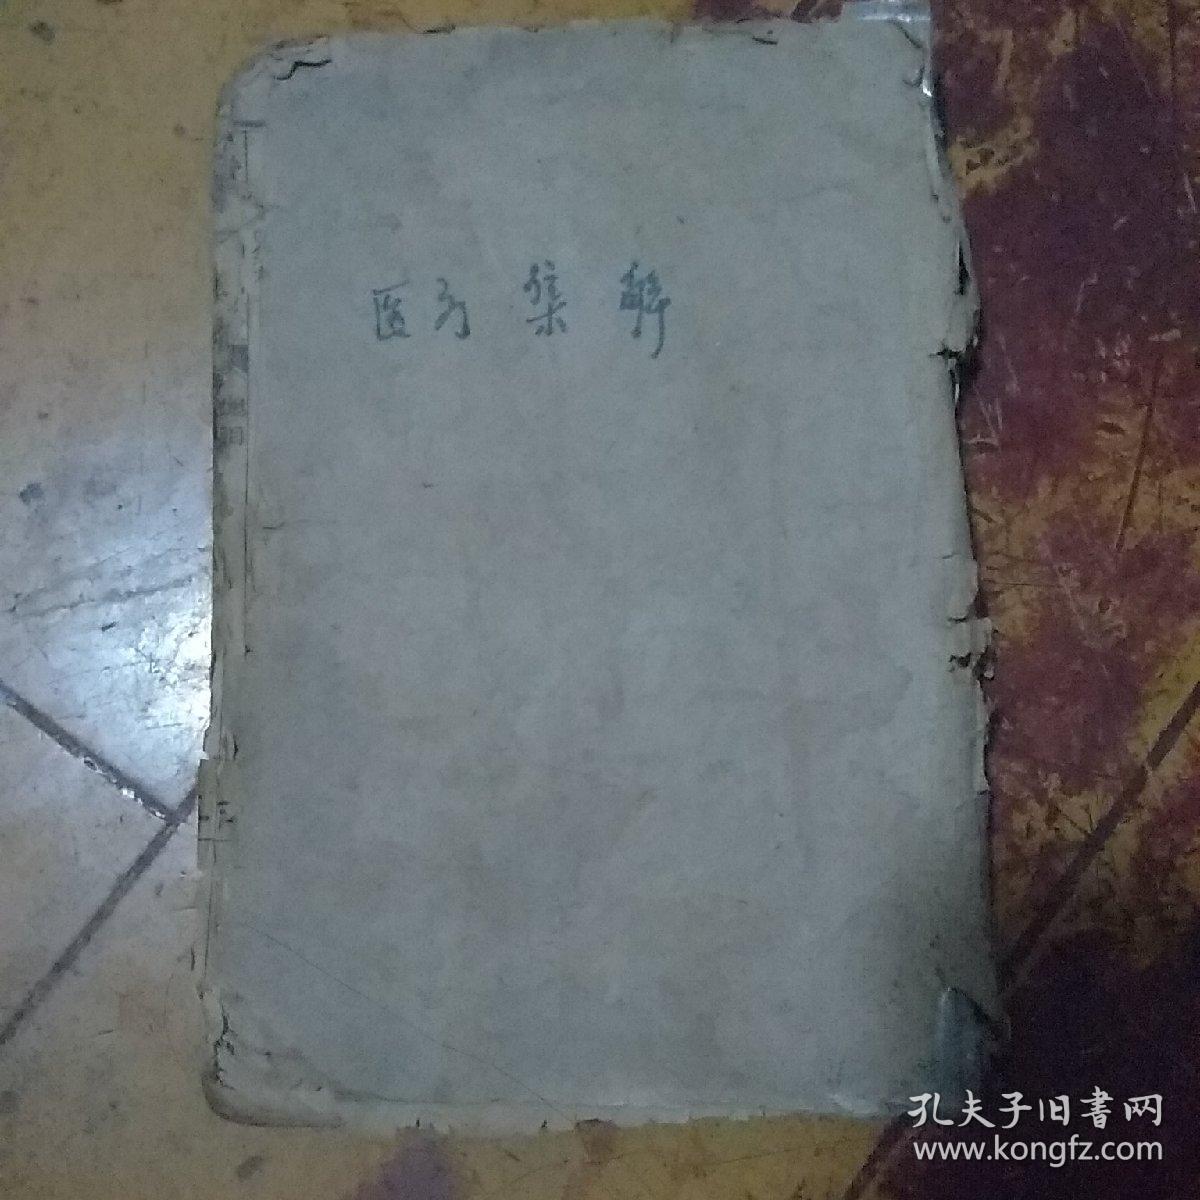 医方 集 解
孔夫子旧書网
www.kongfz.com